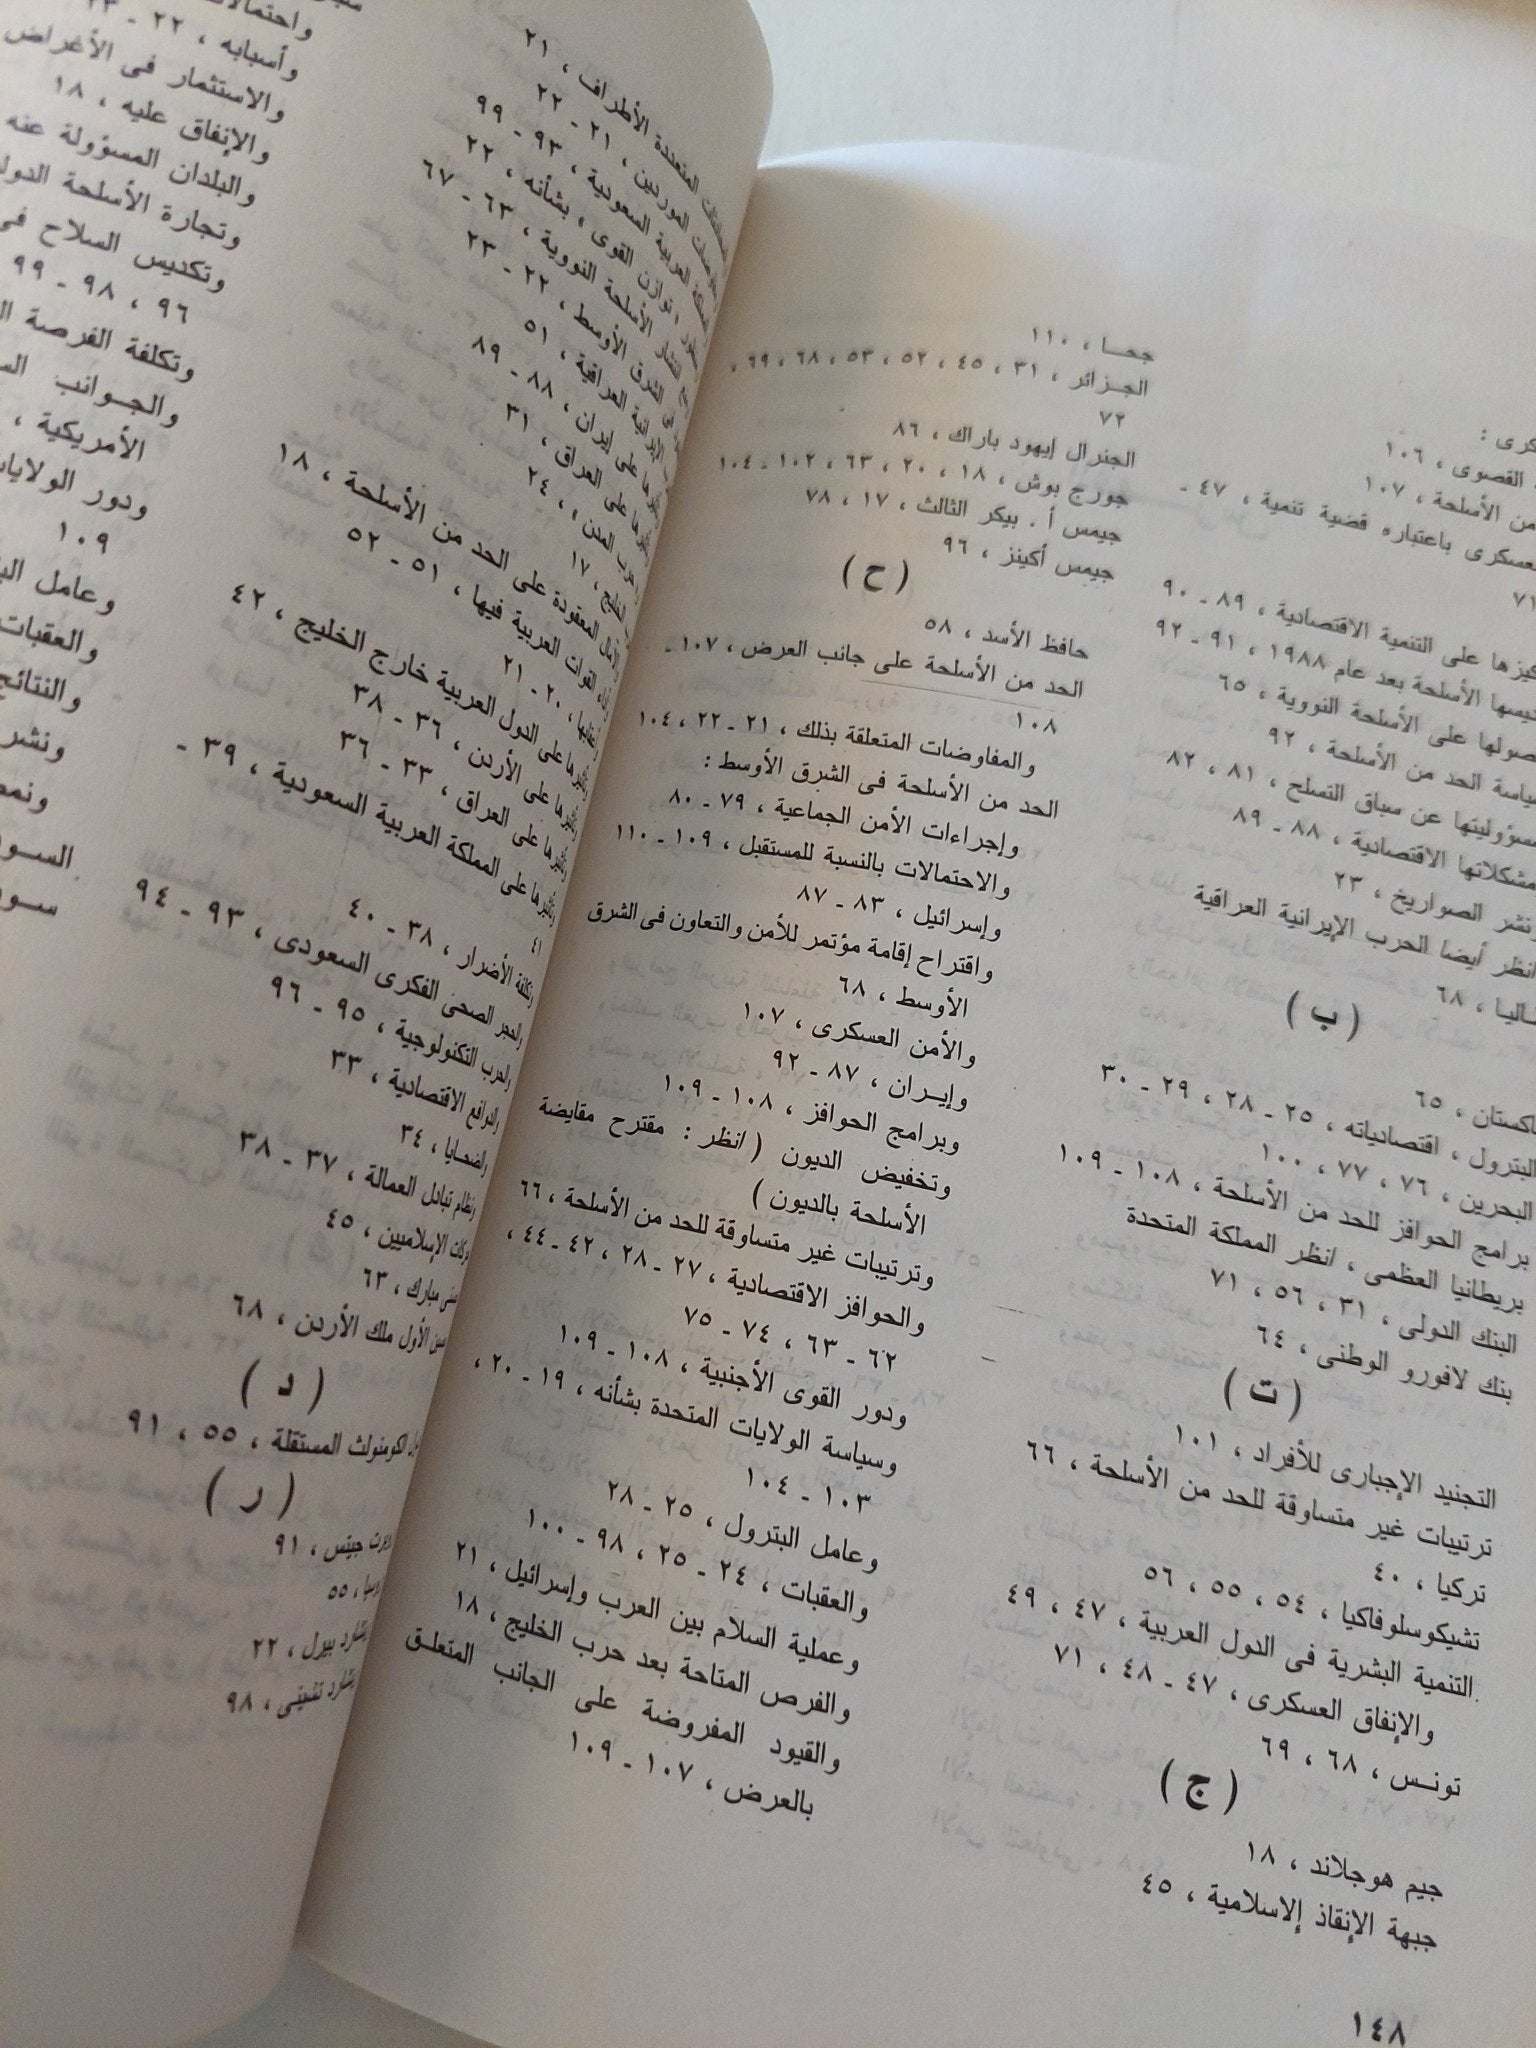 القصوى ، ١٠٦
من الأسلحة ، ١٠٧
باعتباره قضية تنمية ، ٤٧ -
٧١
على التنمية الاقتصادية ، ٨٩ - ٩٠
الأسلحة بعد عام ١٩٨٨ ، ٩١ - ٩٢
على الأسلحة النووية ، ٦٥
الحد من الأسلحة ، ٩٢
عن سباق التسلح ، ٨١ ، ٨٢
مشكلاتها الاقتصادية ، ٨٨ - ٨٩
ونشر الصواريخ ، ٢٣
انظر أيضا الحرب الإيرانية العراقية
٦٨
( ب )
باكستان ، ٦٥
البترول ، اقتصادياته ، ٢٥ - ٢٨ ، ٢٩ - ٣٠
البحرين ، ٧٦ ، ٧٧ ، ١٠٠
برامج الحوافز للحد من الأسلحة ، ١٠٨ - ١٠٩
بريطانيا العظمى ، انظر المملكة المتحدة
البنك الدولى ، ٣١ ، ٥٦ ، ٧١
بنك لافورو الوطنى ، ٦٤
( ت )
التجنيد الإجبارى للأفراد ، ١٠١
ترتيبات غير متساوقة للحد من الأسلحة ، ٦٦
تركيا ، ٤٠
تشيكوسلوفاكيا ، ٥٤ ، ٥٥ ، ٥٦
التنمية البشرية فى الدول العربية ، ٤٧ ، ٤٩
والإنفاق العسكرى ، ٤٧ - ٤٨ ، ٧١
تونس ، ٦٨ ، ٦٩
( ج )
جيم هوجلاند ، ١٨
جبهة الإنقاذ الإسلامية ، ٤٥
جحا ، ١١٠
الجزائر ، ٣١ ، ٤٥ ، ٥٢ ، ٥٣ ، ٦٨ ، ٦٩ ،
٧٢
الجنرال إيهود باراك ، ٨٦
جورج بوش ، ١٨ ، ٢٠ ، ٦٣ ، ١٠٢ - ١٠٤
جيمس أ . بيكر الثالث ، ١٧ ، ٧٨
جيمس أكينز ، ٩٦
( ح )
حافظ الأسد ، ٥٨
الحد من الأسلحة على جانب العرض ، ١٠٧ -
١٠٨
والمفاوضات المتعلقة بذلك ، ٢١ - ٢٢ ، ١٠٤
الحد من الأسلحة فى الشرق الأوسط :
وإجراءات الأمن الجماعية ، ٧٩ - ٨٠
والاحتمالات بالنسبة للمستقبل ، ١٠٩ - ١١٠
وإسرائيل ، ٨٣ - ٨٧
واقتراح إقامة مؤتمر للأمن والتعاون فى الشرق
الأوسط ، ٦٨
والأمن العسكرى ، ١٠٧
وإيران ، ٨٧ - ٩٢
وبرامج الحوافز ، ١٠٨ - ١٠٩
وتخفيض الديون ( انظر : مقترح مقايضة
الأسلحة بالديون )
وترتيبات غير متساوقة للحد من الأسلحة ، ٦٦
والحوافز الاقتصادية ، ٢٧ - ٢٨ ، ٤٢ - ٤٤ ،
٦٢ - ٦٣ ، ٧٤ - ٧٥
ودور القوى الأجنبية ، ١٠٨ - ١٠٩
وسياسة الولايات المتحدة بشأنه ، ١٩ - ٢٠ ،
١٠٣ - ١٠٤
وعامل البترول ، ٢٥ - ٢٨
والعقبات ، ٢٤ - ٢٥ ، ٩٨ - ١٠٠
وعملية السلام بين العرب وإسرائيل ، ٢١
والفرص المتاحة بعد حرب الخليج ، ١٨
والقيود المفروضة على الجانب المتعلق
بالعرض ، ١٠٧ - ١٠٩
١٤٨
المتعددة الأطراف ، ٢١
الموردين ، ٢١ - ٢٢
العربية السعودية ، ٩٣ - ٩٩
توازن القوى ، بشأنه ، ٢٢
انتشار الأسلحة النووية ، ٦٣ - ٦٧
الشرق الأوسط ، ٢٢ - ٢٣
الإيرانية العراقية ، ٥١
على إيران ، ٨٨ - ٨٩
على العراق ، ٣١
المدن ، ٢٤
الخليج ، ١٧
المعقودة على الحد من الأسلحة ، ١٨
القوات العربية فيها ، ٥١ - ٥٢
٢٠ - ٢١
على الدول العربية خارج الخليج ، ٤٢
على الأردن ، ٣٦ - ٣٨
على العراق ، ٣٣ - ٣٦
وتأثيرها على المملكة العربية السعودية ، ٣٩ -
٤١
وتكلفة الأضرار ، ٣٨ - ٤٠
والحجر الصحى الفكرى السعودى ، ٩٣ - ٩٤
والحرب التكنولوجية ، ٩٥ - ٩٦
والدوافع الاقتصادية ، ٣٣
والضحايا ، ٣٤
ونظام تبادل العمالة ، ٣٧ - ٣٨
الإسلاميين ، ٤٥
مبارك ، ٦٣
الأول ملك الأردن ، ٦٨
( د )
الكومنولث المستقلة ، ٥٥ ، ٩١
( ر )
جيتس ، ٩١
٥٥
بيرل ، ٢٢
٩٨
وأسبابه ، ٢٢ -
والاستثمار فى الأغراض
والإنفاق عليه ، ١٨
والبلدان المسؤولة عنه
وتجارة الأسلحة
وتكديس السلاح فى
٩٦ ، ٩٨ - ٩٩
وتكلفة الفرصة
والجوانب
الأمريكية ،
ودور
١٠٩
وعامل
والعقبات
ونشر